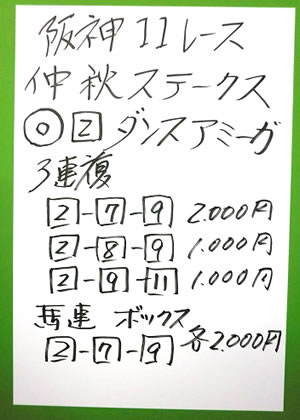 阪神11レース
仲秋ステークス
◎ 2 ダンスアミーガ
3連複
2-7-9 2.000円
2-8-9 1.000円
2-9-11 1.000円
馬連 ボックス
2-7-9 各2.000円